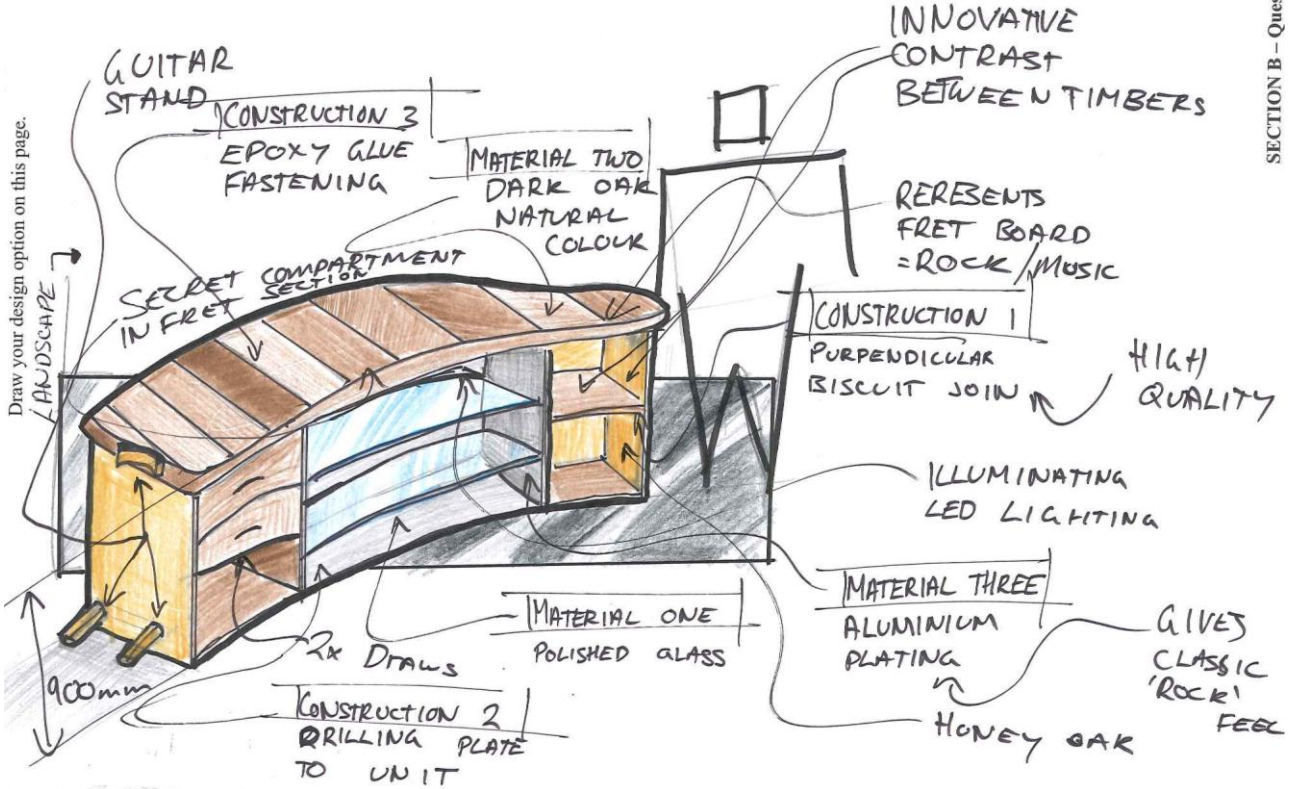 Draw your design option on this page.
LANDSCAPE
SECTION B – Ques
GUITAR
STAND
CONSTRUCTION 3
EPOXY GLUE
FASTENING
MATERIAL TWO
DARK OAK
NATURAL
COLOUR
INNOVATIVE
CONTRAST
BETWEEN TIMBERS
RERESENTS
FRET BOARD
= ROCK / MUSIC
SECRET COMPARTMENT
IN FRET SECTION
CONSTRUCTION 1
PURPENDICULAR
BISCUIT JOIN
HIGH
QUALITY
ILLUMINATING
LED LIGHTING
MATERIAL THREE
ALUMINIUM
PLATING
GIVES
CLASSIC
'ROCK'
FEEL
HONEY OAK
MATERIAL ONE
POLISHED GLASS
2x DRAWS
900mm
CONSTRUCTION 2
DRILLING PLATE
TO UNIT